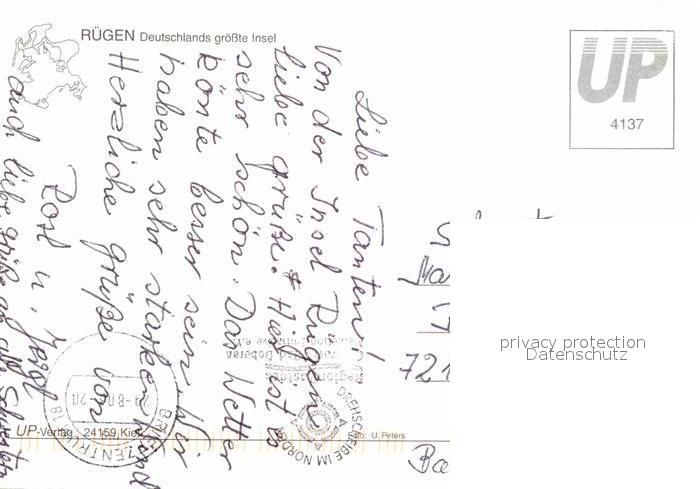 RÜGEN Deutschlands größte Insel
UP
4137
Liebe Tanten!
Von der Insel Rügen
liebe grüße. Hier ist es
sehr schön. Das Wetter
könte besser sein, Wir
haben sehr starken Wind
Herzliche grüße von
Rosl u.
auch liebe grüße an alle Schwestern
privacy protection
Datenschutz
721
Ba
BRIEFZENTRUM 18
DREHSCHEIBE IM NORDEN
Bad Doberan
UP-Verlag 24159 Kiel
U. Peters